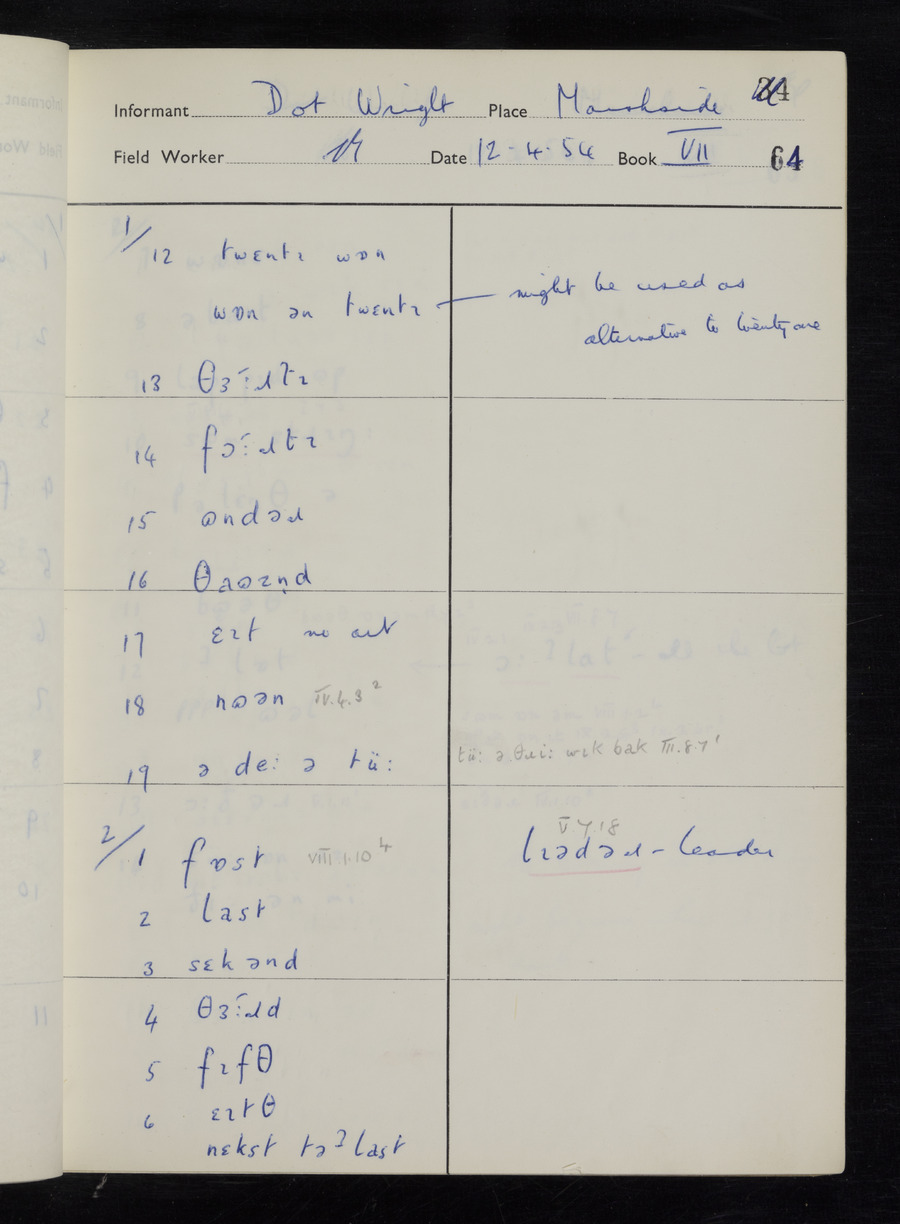 Informant Dot Wright Place Marshside 64
Field Worker Date 12-4-54 Book VII
1/12 twɛntɪ wɒn
wɒn ən twɛntɪ — might be used as
alternative to twenty one
13 θɜ˞ːɹtɪ
14 fɔ˞ːɹtɪ
15 ɷndəɹ
16 θaɷzn̩d
17 ɛɪt no aut
18 nɷən IV.4.3²
19 ə deː ə tüː
tüː ə θɹiː wɪk bak III.8.7¹
2/1 fɒst VIII.1.10⁴
V.7.18
lɪədəɹ - leader
2 last
3 sɛkənd
4 θɜ˞ːɹd
5 fɪfθ
6 ɛɪtθ
nɛkst təʔ last